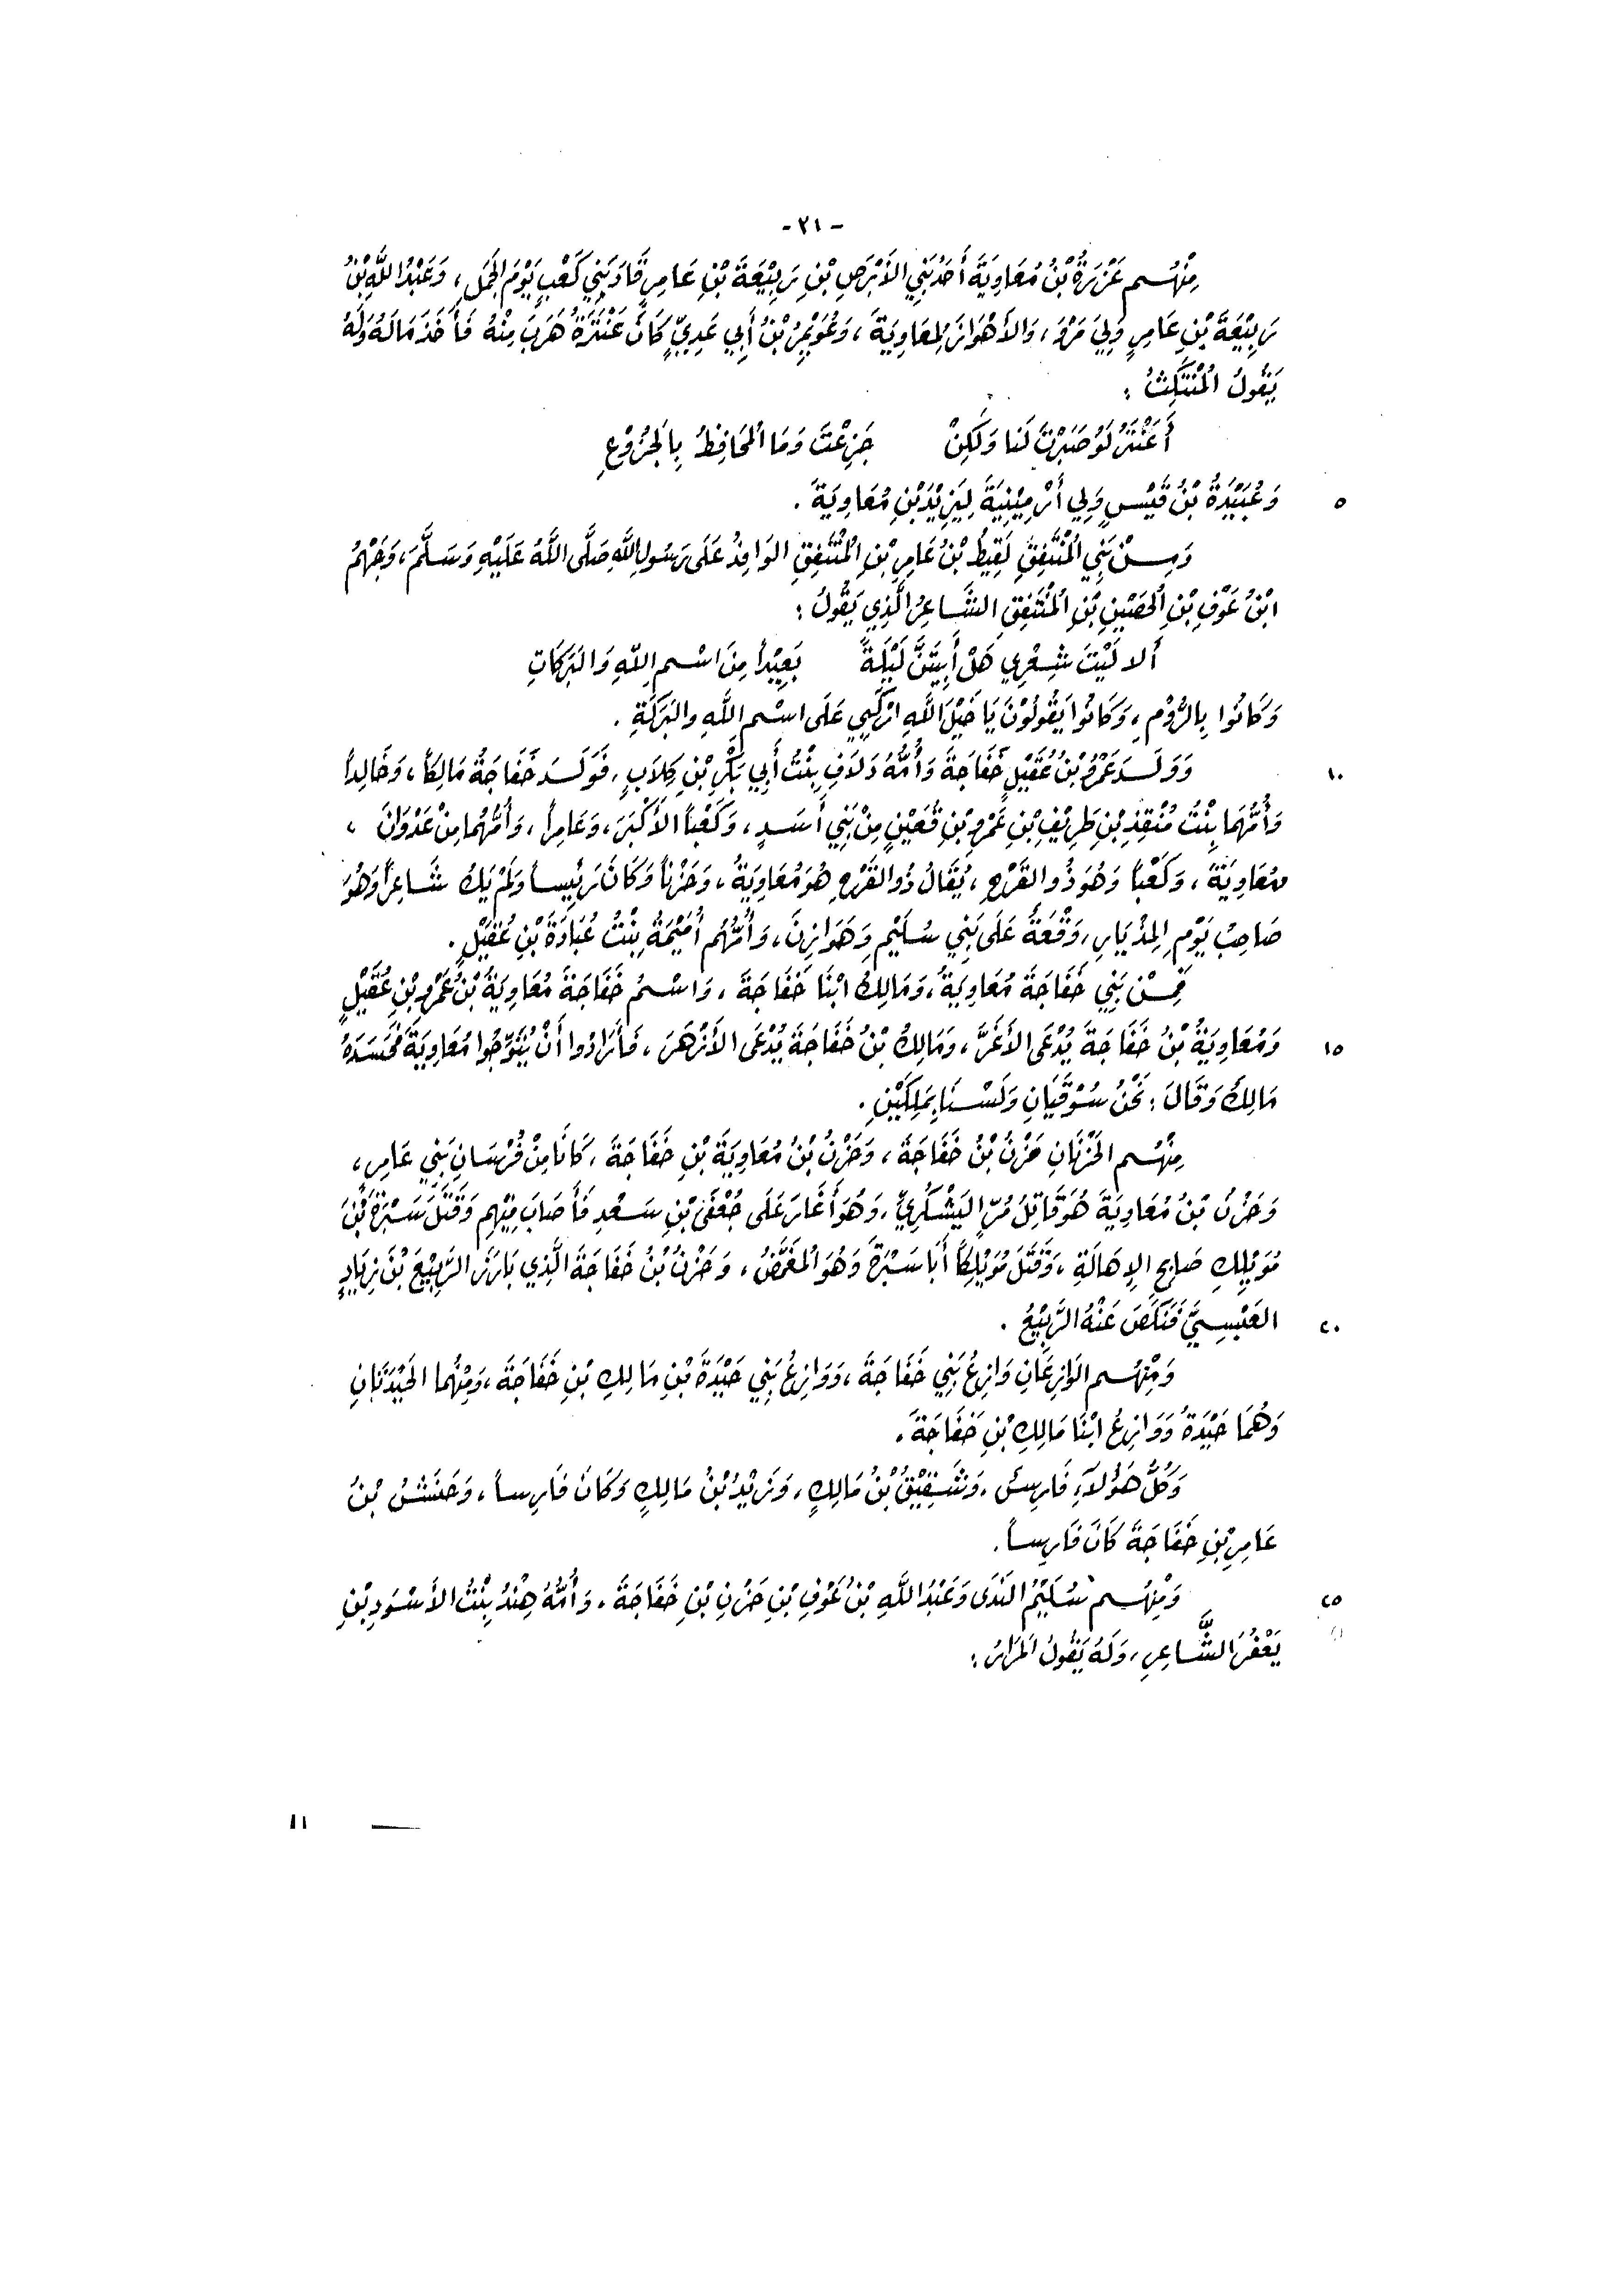 - ٢١ -
مِنْهُـم عَزْرَةُ بْنُ مُعَاوِيَةَ أَحَدُ بَنِي الأَبْرَصِ بْنِ رَبِيْعَةَ بْنِ عَامِرٍ قَادَ بَنِي كَعْبٍ يَوْمَ الجَمَلِ، وَعَبْدُ اللَّهِ بْنُ
رَبِيْعَةَ بْنِ عَامِرٍ وَلِيَ مَرْوَ، وَالأَهْوَازَ لِمُعَاوِيَةَ، وَعُوَيْمِرُ بْنُ أَبِي عَدِيٍّ كَانَ عَنْتَرَةُ هَرَبَ مِنْهُ فَأَخَذَ مَالَهُ وَلَهُ
يَقُولُ الْمُنْتَكِثُ :
أَعَنْتَرُ لَوْ صَبَرْتَ لَنا وَلَكِنْ جَزِعْتَ وَمَا الْمُحَافِظُ بِالْجَزُوْعِ
٥ وَعُبَيْدَةُ بْنُ قَيْسٍ وَلِي أَرْمِيْنِيَةَ لِيَزِيْدَ بْنِ مُعَاوِيَةَ .
وَمِـنْ بَنِي الْمُنْتَفِقِ لَقِيطُ بْنُ عَامِرِ بْنِ الْمُنْتَفِقِ الوَافِدُ عَلَى رَسُولِ اللَّهِ صَلَّى اللَّهُ عَلَيْهِ وَسَلَّمَ، وَجَهْمُ
ابْنُ عَوْفِ بْنِ الْحُصَيْنِ بْنِ الْمُنْتَفِقِ الشَّاعِرُ الَّذِي يَقُولُ :
أَلا لَيْتَ شِعْرِي هَلْ أَبِيْتَنَّ لَيْلَةً بَعِيْداً مِنَ اسْمِ اللَّهِ وَالبَرَكَاتِ
وَكَانُوا بِالرُّوْمِ، وَكَانُوا يَقُولُوْنَ يَا خَيْلَ اللَّهِ ارْكَبِي عَلَى اسْمِ اللَّهِ والبَرَكَةِ .
١٠ وَوَلَـدَ عَمْرُو بْنُ عُقَيْلٍ خَفَاجَةَ وَأُمُّهُ دَلَافِ بِنْتُ أَبِي بَكْرِ بْنِ كِلَابٍ، فَوَلَـدَ خَفَاجَةُ مَالِكاً، وَخَالِداً
وَأُمُّهُمَا بِنْتُ مُنْقِذِ بْنِ طَرِيْفِ بْنِ عَمْرِو بْنِ قُعَيْنٍ مِنْ بَنِي أَسَـدٍ، وَكَعْباً الأَكْبَرَ، وَعَامِراً، وَأُمُّهُما مِنْ عَدْوَانَ ،
مُعَاوِيَةَ، وَكَعْباً وَهُوَ ذُو القَرْحِ، يُقَالُ ذُو القَرْحِ هُوَ مُعَاوِيَةُ، وَحَزْناً وَكَانَ رَئِيساً وَلَمْ يَكُ شَاعِراً وَهُوَ
صَاحِبُ يَوْمِ الِمذْيَارِ، وَقْعَةٌ عَلَى بَنِي سُلَيْمٍ وَهَوَازِنَ، وَأُمُّهُم أُمَيْمَةُ بِنْتُ عُبَادَةَ بْنِ عُقَيْلٍ .
فَمِـنْ بَنِي خَفَاجَةَ مُعَاوِيَةُ، وَمَالِكُ ابْنَا خَفَاجَةَ، وَاسْمُ خَفَاجَةَ مُعَاوِيَةُ بْنُ عَمْرِو بْنِ عُقَيْلٍ
١٥ وَمُعَاوِيَةُ بْنُ خَفَاجَةَ يُدْعَى الأَغَرَّ، وَمَالِكُ بْنُ خَفَاجَةَ يُدْعَى الأَزْهَرَ، فَأَرَادُوا أَنْ يُتَوِّجُوا مُعَاوِيَةَ فَحَسَدَهُ
مَالِكٌ وَقَالَ : نَحْنُ سُوْقَيَانِ وَلَسْـنَا بِمَلِكَيْنِ .
مِنْهُـم الحَزْنَانِ حَزْنُ بْنُ خَفَاجَةَ، وَحَزْنُ بْنُ مُعَاوِيَةَ بْنِ خَفَاجَةَ، كَانَا مِنْ فُرْسَانِ بَنِي عَامِرٍ،
وَحَزْنُ بْنُ مُعَاوِيَةَ هُوَ قَاتِلُ مُرٍّ اليَشْكُرِيِّ، وَهُوَ أَغَارَ عَلَى جُعْفَيّ بْنِ سَـعْدٍ فَأَصَابَ مِنْهُم وَقَتَلَ سَبْرَةَ بْنَ
مُوَيْلِكِ صَابِحِ الإِهَالَةِ، وَقَتَلَ مُوَيْلِكاً أَبَا سَبْرَةَ وَهُوَ الْمُغَمَّضُ، وَحَزْنُ بْنُ خَفَاجَةَ الَّذِي بَارَزَ الرَّبِيْعَ بْنَ زِيَادٍ
٢٠ العَبْسِـيَّ فَنَكَصَ عَنْهُ الرَّبِيْعُ .
وَمِنْهُـم الوَازِعَانِ وَازِعُ بَنِي خَفَاجَةَ، وَوَازِعُ بَنِي حَيْدَةَ بْنِ مَالِكِ بْنِ خَفَاجَةَ، وَمِنْهُما الحَيْدَتَانِ
وَهُمَا حَيْدَةُ وَوَازِعُ ابْنَا مَالِكِ بْنِ خَفَاجَةَ .
وَكُلُّ هَؤُلَآءِ فَارِسٌ، وَشَـقِيْقُ بْنُ مَالِكٍ، وَزَيْدُ بْنُ مَالِكٍ وَكَانَ فَارِساً، وَحَنَشُ بْنُ
عَامِرِ بْنِ خَفَاجَةَ كَانَ فَارِساً .
٢٥ وَمِنْهُـم سُلَيْمُ النَّدَى وَعَبْدُ اللَّهِ بْنُ عَوْفِ بْنِ حَزْنِ بْنِ خَفَاجَةَ، وَأُمُّهُ هِنْدُ بِنْتُ الأَسْوَدِ بْنِ
يَعْفُرَ الشَّاعِرِ، وَلَهُ يَقُولُ المَرَّارُ :